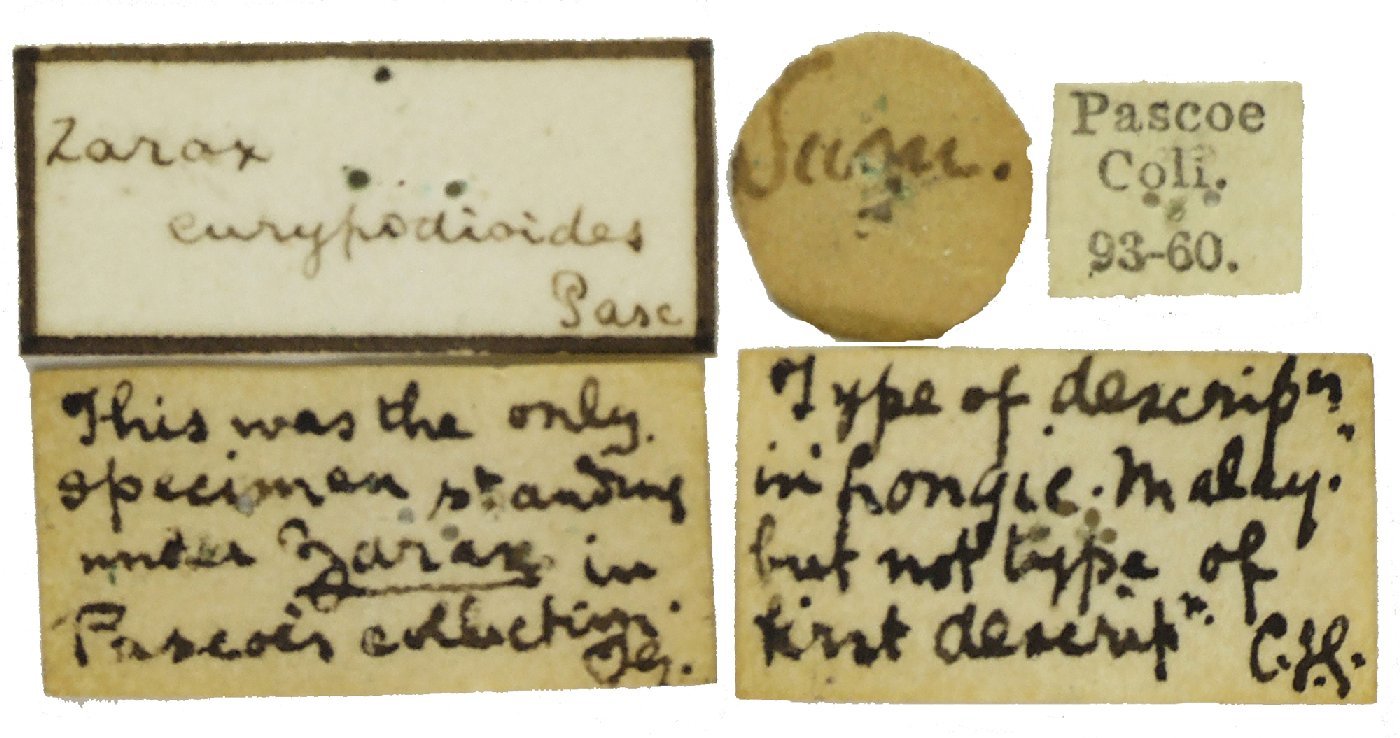 Zarax
eurypodioides
Pasc
Sum.
Pascoe
Coll.
93-60.
This was the only
specimen standing
under Zarax in
Pascoe's collection.
Type of descripn.
in Longic. Malay.
but not type of
first descripn.
C.J.G.